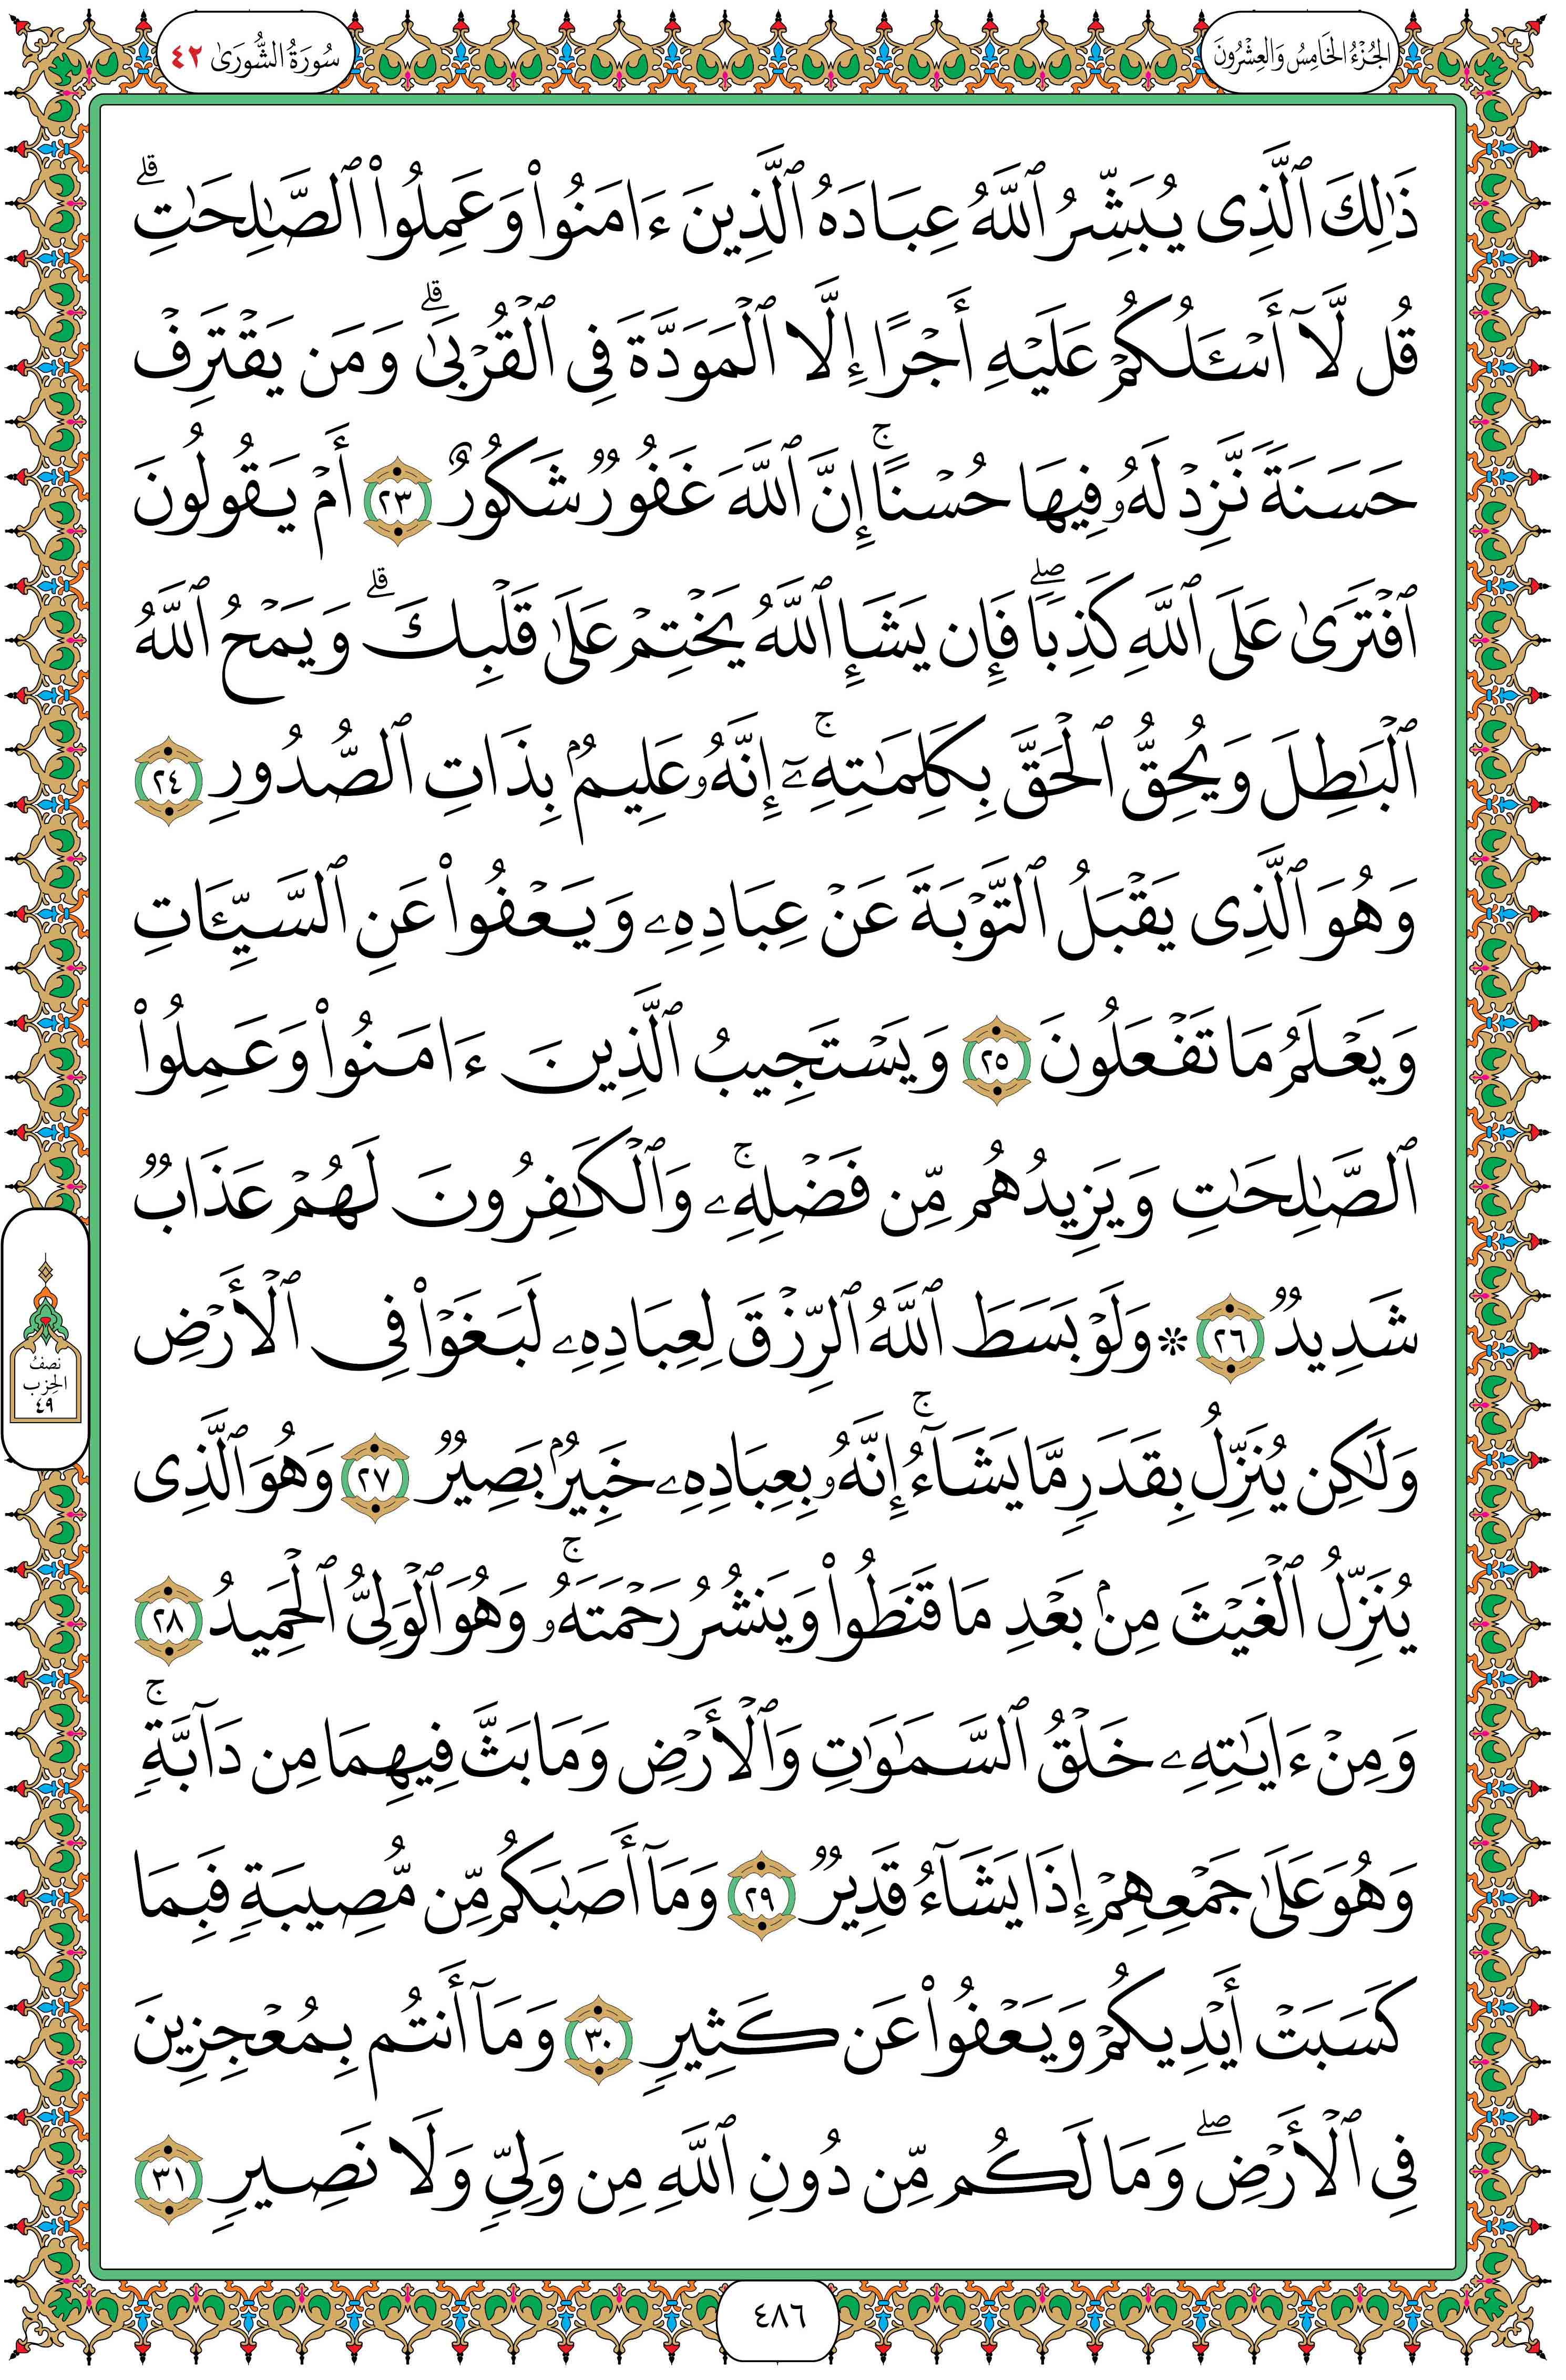 الجُزْءُ الخَامِسُ وَالعِشْرُونَ
سُورَةُ الشُّورَىٰ ٤٢
ذَٰلِكَ ٱلَّذِى يُبَشِّرُ ٱللَّهُ عِبَادَهُ ٱلَّذِينَ ءَامَنُوا۟ وَعَمِلُوا۟ ٱلصَّـٰلِحَـٰتِ ۗ
قُل لَّآ أَسْـَٔلُكُمْ عَلَيْهِ أَجْرًا إِلَّا ٱلْمَوَدَّةَ فِى ٱلْقُرْبَىٰ ۗ وَمَن يَقْتَرِفْ
حَسَنَةً نَّزِدْ لَهُۥ فِيهَا حُسْنًا ۚ إِنَّ ٱللَّهَ غَفُورٌ شَكُورٌ ٢٣ أَمْ يَقُولُونَ
ٱفْتَرَىٰ عَلَى ٱللَّهِ كَذِبًا ۖ فَإِن يَشَإِ ٱللَّهُ يَخْتِمْ عَلَىٰ قَلْبِكَ ۗ وَيَمْحُ ٱللَّهُ
ٱلْبَـٰطِلَ وَيُحِقُّ ٱلْحَقَّ بِكَلِمَـٰتِهِۦٓ ۚ إِنَّهُۥ عَلِيمٌۢ بِذَاتِ ٱلصُّدُورِ ٢٤
وَهُوَ ٱلَّذِى يَقْبَلُ ٱلتَّوْبَةَ عَنْ عِبَادِهِۦ وَيَعْفُوا۟ عَنِ ٱلسَّيِّـَٔاتِ
وَيَعْلَمُ مَا تَفْعَلُونَ ٢٥ وَيَسْتَجِيبُ ٱلَّذِينَ ءَامَنُوا۟ وَعَمِلُوا۟
ٱلصَّـٰلِحَـٰتِ وَيَزِيدُهُم مِّن فَضْلِهِۦ ۚ وَٱلْكَـٰفِرُونَ لَهُمْ عَذَابٌ
شَدِيدٌ ٢٦ ۞ وَلَوْ بَسَطَ ٱللَّهُ ٱلرِّزْقَ لِعِبَادِهِۦ لَبَغَوْا۟ فِى ٱلْأَرْضِ
وَلَـٰكِن يُنَزِّلُ بِقَدَرٍ مَّا يَشَآءُ ۚ إِنَّهُۥ بِعِبَادِهِۦ خَبِيرٌۢ بَصِيرٌ ٢٧ وَهُوَ ٱلَّذِى
يُنَزِّلُ ٱلْغَيْثَ مِنۢ بَعْدِ مَا قَنَطُوا۟ وَيَنشُرُ رَحْمَتَهُۥ ۚ وَهُوَ ٱلْوَلِىُّ ٱلْحَمِيدُ ٢٨
وَمِنْ ءَايَـٰتِهِۦ خَلْقُ ٱلسَّمَـٰوَٰتِ وَٱلْأَرْضِ وَمَا بَثَّ فِيهِمَا مِن دَآبَّةٍ ۚ
وَهُوَ عَلَىٰ جَمْعِهِمْ إِذَا يَشَآءُ قَدِيرٌ ٢٩ وَمَآ أَصَـٰبَكُم مِّن مُّصِيبَةٍ فَبِمَا
كَسَبَتْ أَيْدِيكُمْ وَيَعْفُوا۟ عَن كَثِيرٍ ٣٠ وَمَآ أَنتُم بِمُعْجِزِينَ
فِى ٱلْأَرْضِ ۖ وَمَا لَكُم مِّن دُونِ ٱللَّهِ مِن وَلِىٍّ وَلَا نَصِيرٍ ٣١
نصفُ
الحِزب
٤٩
٤٨٦